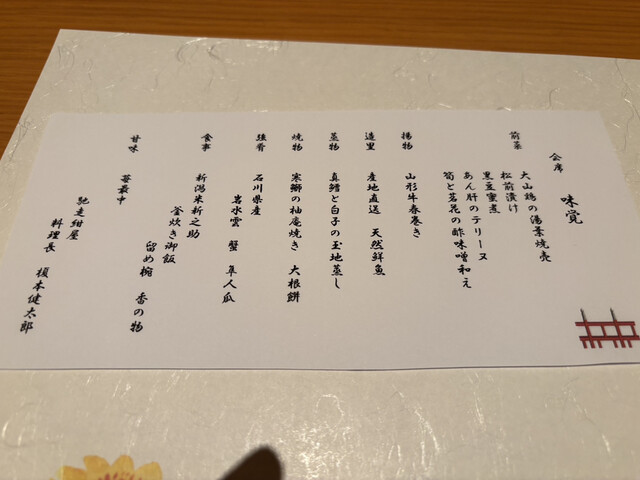 会席 味覚
前菜
大山鶏の湯葉焼売
松前漬け
黒豆蜜煮
あん肝のテリーヌ
筍と菜花の酢味噌和え
揚物
山形牛春巻き
造里
産地直送 天然鮮魚
蒸物
真鱈と白子の玉地蒸し
焼物
寒鰤の柚庵焼き 大根餅
強肴
石川県産
岩水雲 蟹 隼人瓜
食事
新潟米新之助
釜炊き御飯
留め椀 香の物
甘味
苺最中
馳走紺屋
料理長 榎本健太郎